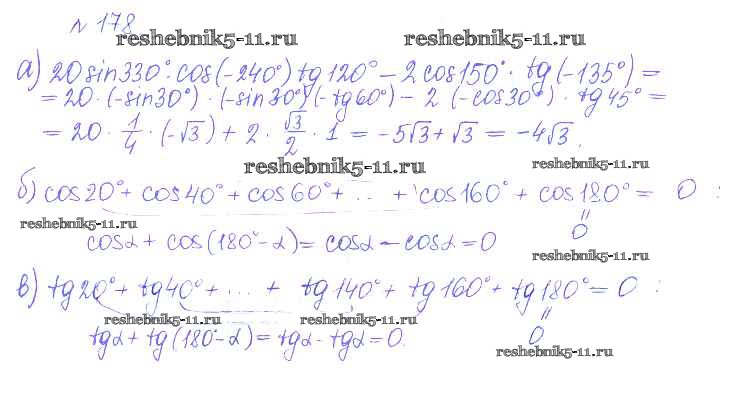 № 178
reshebnik5-11.ru reshebnik5-11.ru
а) 20sin330°·cos(-240°)tg120° - 2cos150°·tg(-135°) =
= 20·(-sin30°)·(-sin30°)(-tg60°) - 2(-cos30°)·tg45° =
= 20·1/4·(-√3) + 2·√3/2·1 = -5√3 + √3 = -4√3.
reshebnik5-11.ru reshebnik5-11.ru
б) cos20° + cos40° + cos60° + ... + cos160° + cos180° = 0 :
reshebnik5-11.ru
"
0
cosα + cos(180°-α) = cosα - cosα = 0
reshebnik5-11.ru
в) tg20° + tg40° + ... + tg140° + tg160° + tg180° = 0 :
reshebnik5-11.ru reshebnik5-11.ru
"
0
tgα + tg(180°-α) = tgα - tgα = 0.
reshebnik5-11.ru